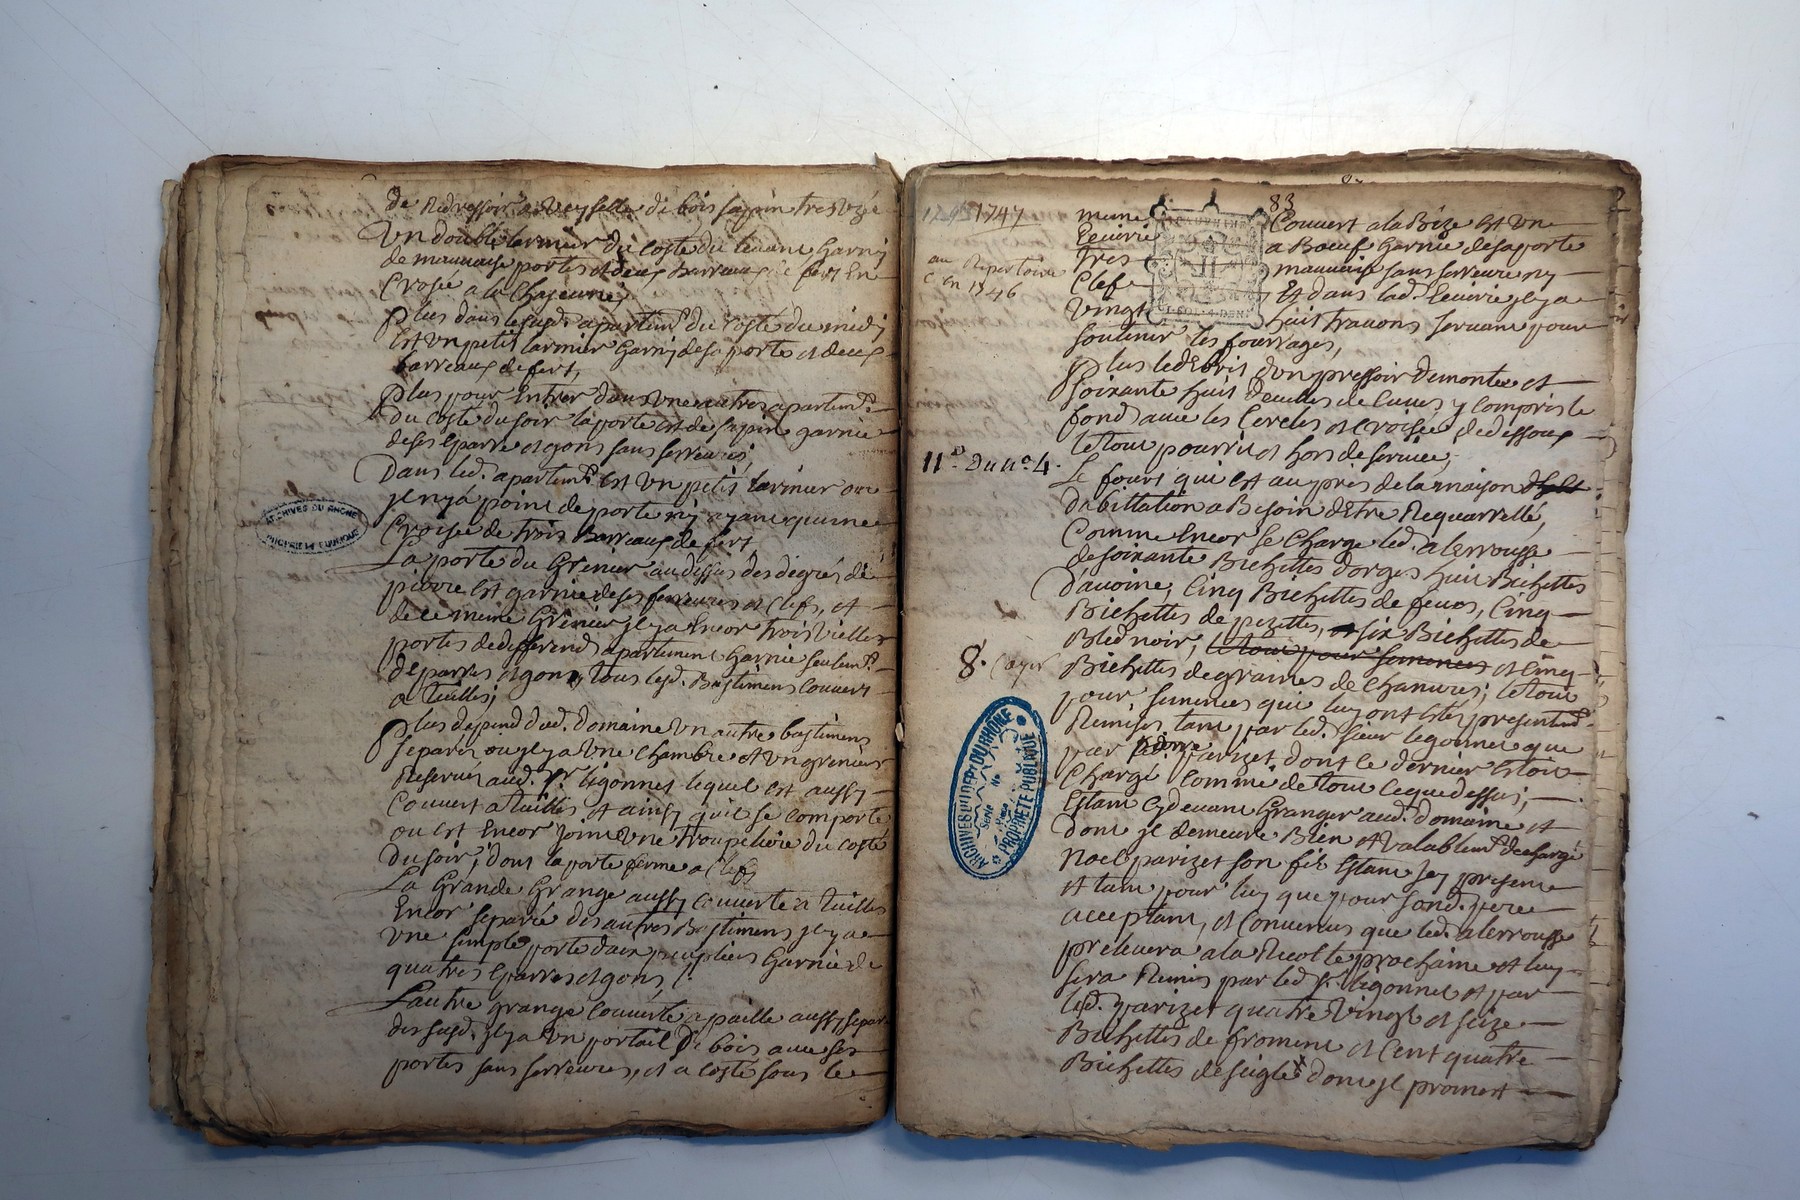 de Redressoir a Veyselle de bois sapin tres Uzé
Un double larmier du costé du levant Garny
de mauvaise portes et deux Barreaux de fert En
Croisée a la
Plus dans le susd. apartem.t du Costé du midy
Est Un petit larmier Garny de sa porte et deux
barreaux de fert,
Plus pour Entrer dans Une autres apartem.t
du Costé du soir la porte est de sapin garnie
de ses Eparre et gons sans serreures,
Dans led. apartem.t Est Un petit larmier ou
jl ny a point de porte ny ayant qu'une
Croisée de trois Barreaux de fert
La porte du Grenier au dessus des degrés de
pierre est garnie de ses serreures et Clefs, et
de ce meme Grenier jl y a Encor trois Vielles
portes de differend apartement Garnie seulem.t
deparres et gons, tous lesd. Bastimens Couvert
a tuilles;
Plus depend dud. domaine Un autre bastimens
separés ou jl y a Une Chambre et Un grenier
Reservés aud. Sr. Legonnet lequel est aussy
Couvert a tuilles et ainsy qu'il se comporte
ou est Encor joint Une troupeliere du costé
du soir, dont la porte ferme a Clefs
La Grande Grange aussy Couverte a tuilles
Encor separée des autres Bastimens jl y a
Une simple porte daix peupliers Garnie de
quatres Eparres et gons,
L'autre grange Couverte a paille aussy separé
des susd. jl y a Un portail de bois avec ses
portes sans serreures, et a costé sous le
ARCHIVES DU RHONE
PROPRIETE PUBLIQUE
83
1745 1747
au Repertoire
C en 1746
meme Couvert a la Bize est Une
Ecuirie a Boeuf Garnie de sa porte
tres mauvaise sans serreure ny
Clef Et dans lad. Ecuirie jl y a
Vingt huit travons servant pour
soutenir les fourrages,
Plus le debris d'un pressoir demonté et
soixante huit deuelles de Cuves y compris le
fond avec les Cercles et Croisée de dessous
le tout pourrit et hors de service,
11e. Du n.o 4.
Le fourt qui est au près de la maison
D'abittation a Besoin d'Etre Requarrellé,
Comme Encor se Charge led. alerrousse
de soixante Bichettes dorges huit Bichettes
Davoine, Cinq Bichettes de feves, Cinq
Bichettes de pezettes, et six Bichettes de
Bled noir, le tout pour semences et Cinq
8. Cayer
Bichettes de graines de Chanvres; le tout
pour semences qui luy ont Etés presentem.t
Remises tant par led. sieur Legonnet que
par pierre parizet dont ce dernier Estoit
Chargé comme de tout ce que dessus,
Estant Cy devant Granger aud. domaine et
dont jl demeure Bien et Valablem.t dechargé
Noel parizet son fils Estant Jcy present
et tant pour luy que pour sond. pere
acceptant, et Convenus que led. alerrousse
prelevera a la Recolte prochaine et luy
sera Remis par led Sr. Legonnet et par
led. parizet quatre Vingt et seize
Bichettes de froment et Cent quatre
Bichettes de seigle dont jl promet
ARCHIVES DU DEP.t DU RHONE
Serie No
Piece
PROPRIETE PUBLIQUE